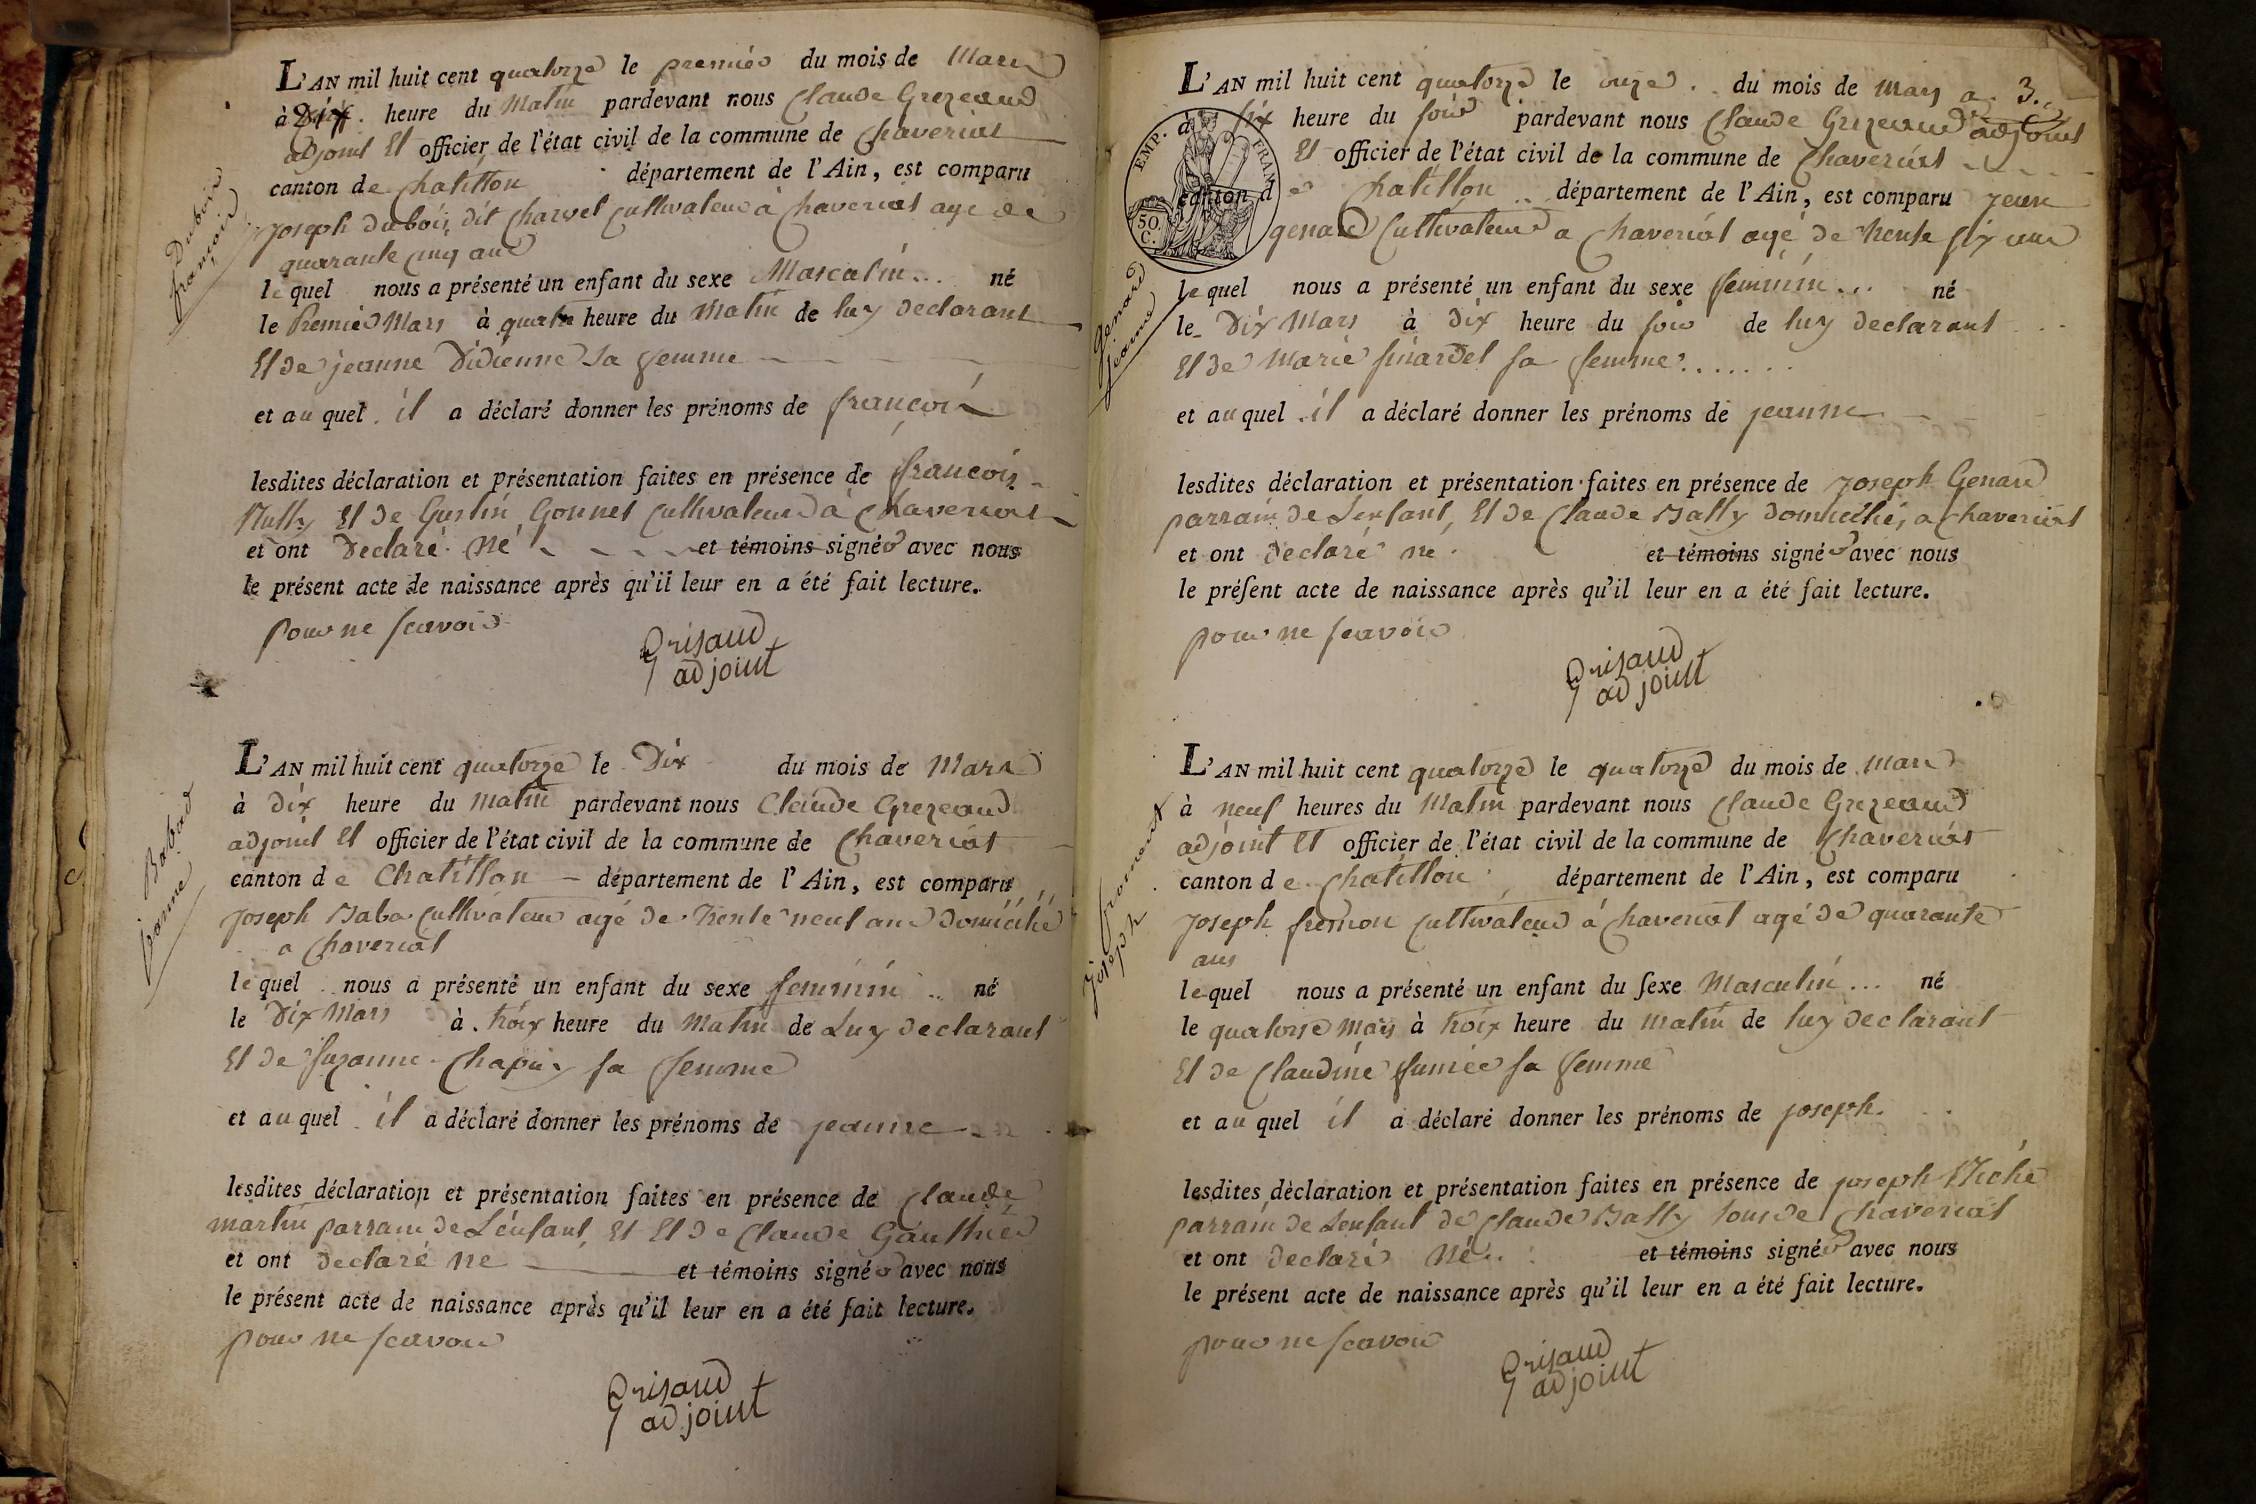 L'AN mil huit cent quatorze le premier du mois de Mars
à Dix heure du Matin pardevant nous Claude Grezeaud
adjoint Et officier de l'état civil de la commune de Chaveriat
canton de Chatillon département de l'Ain, est comparu
joseph dubois dit Charvet Cultivateur à Chaveriat agé de
quarante cinq ans
lequel nous a présenté un enfant du sexe Masculin... né
le Premier Mars à quatre heure du Matin de luy declarant
Et de jeanne Didienne sa femme
et au quel il a déclaré donner les prénoms de françois
lesdites déclaration et présentation faites en présence de françois
Et de Gustin Gonnet Cultivateur à Chaveriat
et ont Declaré Né et témoins signé avec nous
le présent acte de naissance après qu'il leur en a été fait lecture.
pour ne scavoir
Grisaud
adjoint
Dubois
françois
L'AN mil huit cent quatorze le Dix du mois de Mars
à dix heure du Matin pardevant nous Claude Grezeaud
adjoint Et officier de l'état civil de la commune de Chaveriat
canton de Chatillon département de l'Ain, est comparu
joseph Baba Cultivateur agé de trente neuf ans domicilié
a Chaveriat
lequel nous a présenté un enfant du sexe feminin .. né
le Dix Mars à troix heure du Matin de Luy declarant
Et de suzanne Chapuy sa femme
et au quel il a déclaré donner les prénoms de jeanne
lesdites déclaration et présentation faites en présence de Claude
martin parrain de L'enfant, Et Et de Claude Gauthier
et ont declaré ne et témoins signé avec nous
le présent acte de naissance après qu'il leur en a été fait lecture.
pour ne scavoir
Grisaud
adjoint
Babad
jeanne
3.
L'AN mil huit cent quatorze le onze du mois de Mars a
à six heure du soir pardevant nous Claude Grezeaud adjoint
Et officier de l'état civil de la commune de Chaveriat
canton de Chatillon .. département de l'Ain, est comparu jean
genard Cultivateur a Chaveriat agé de trente six ans
EMP. FRAN.
50 C.
lequel nous a présenté un enfant du sexe feminin... né
le Dix Mars à dix heure du soir de luy declarant
Et de Marie sa femme.......
et au quel il a déclaré donner les prénoms de jeanne
lesdites déclaration et présentation faites en présence de joseph Genard
parrain de Lenfant, Et de Claude Bally domiciliés a Chaveriat
et ont declaré né et témoins signé avec nous
le présent acte de naissance après qu'il leur en a été fait lecture.
pour ne scavoir
Grisaud
adjoint
genard
jeanne
L'AN mil huit cent quatorze le quatorze du mois de Mars
à neuf heures du Matin pardevant nous Claude Grezeaud
adjoint Et officier de l'état civil de la commune de Chaveriat
canton de Chatillon département de l'Ain, est comparu
joseph fremon Cultivateur à Chaveriat agé de quarante
ans
lequel nous a présenté un enfant du sexe Masculin... né
le quatorse Mars à troix heure du matin de luy declarant
Et de Claudine sa femme
et au quel il a déclaré donner les prénoms de joseph.
lesdites déclaration et présentation faites en présence de joseph
parrain de Lenfant de Claude Bally tous de Chaveriat
et ont declaré Né.. et témoins signé avec nous
le présent acte de naissance après qu'il leur en a été fait lecture.
pour ne scavoir
Grisaud
adjoint
joseph